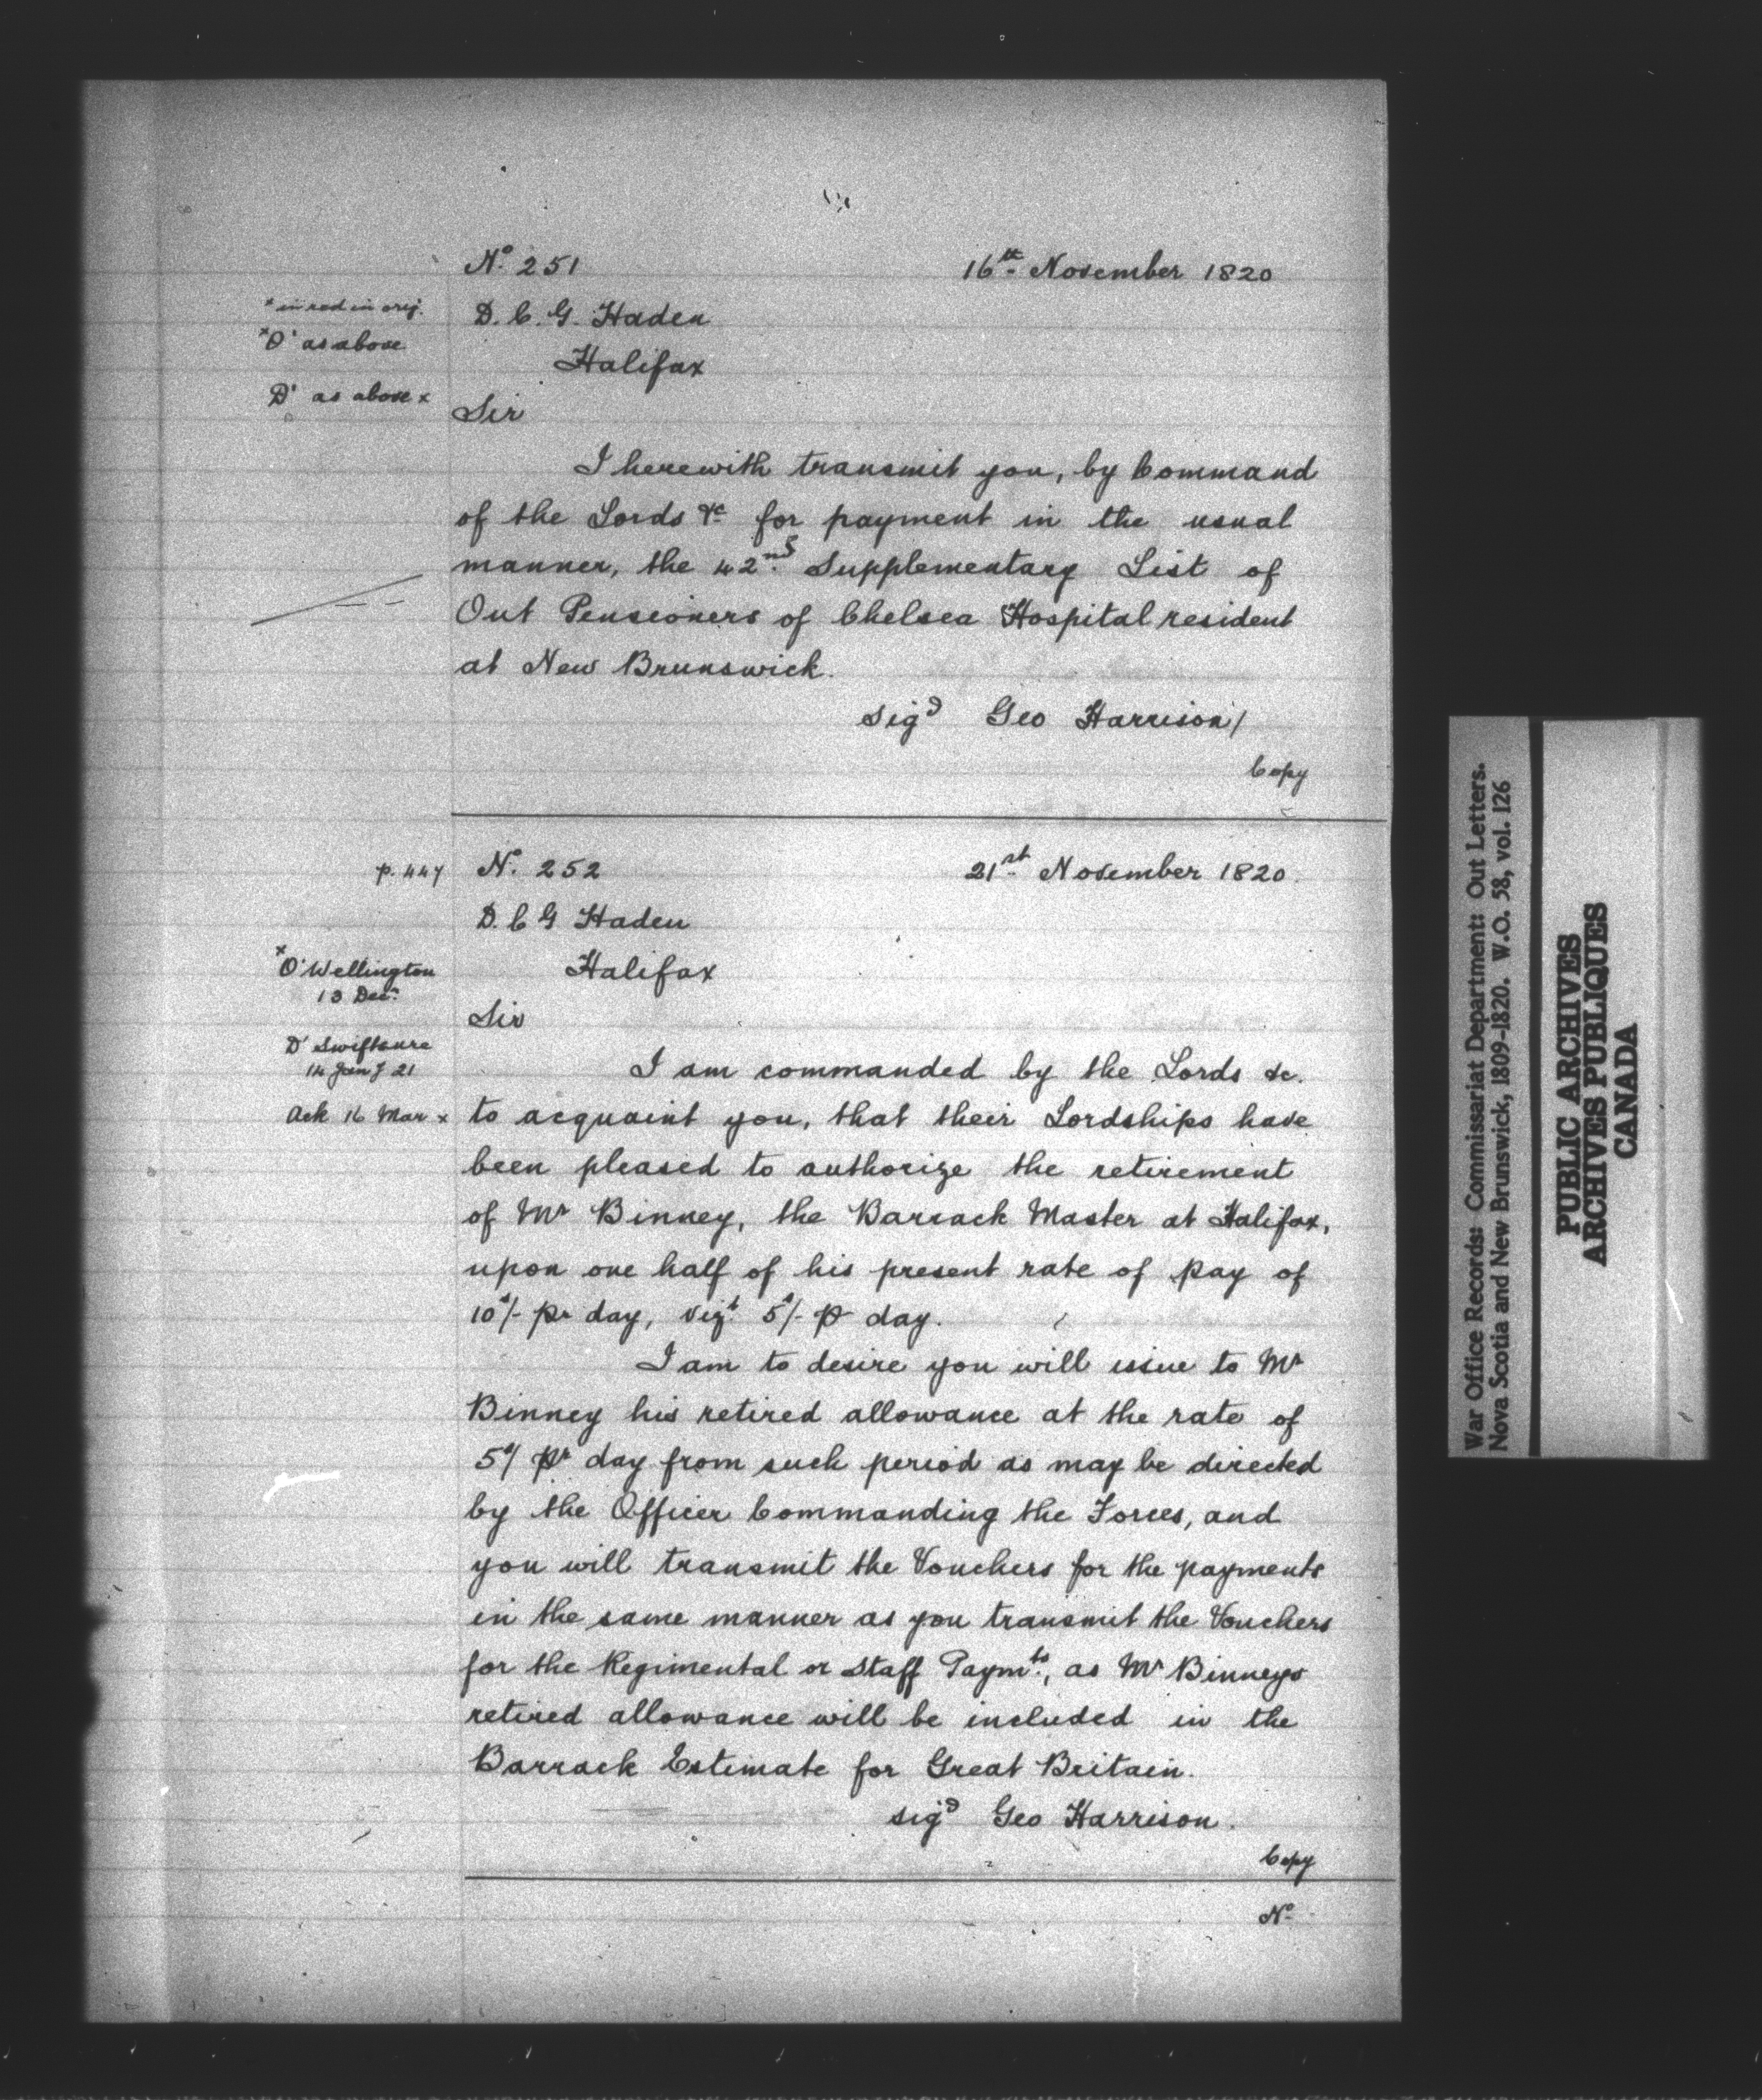 No. 251
16th November 1820
* in red in orig.
D. C. G. Haden
*O' as above
Halifax
D' as above x
Sir
I herewith transmit you, by Command
of the Lords &c for payment in the usual
manner, the 42nd Supplementary List of
Out Pensioners of Chelsea Hospital resident
at New Brunswick.
Sigd Geo Harrison/
Copy
p. 447
No. 252
21st November 1820.
D. C G Haden
*O' Wellington
Halifax
13 Dec.
Sir
D' Swiftsure
14 Jany 21
I am commanded by the Lords &c.
Ack 16 Mar x
to acquaint you, that their Lordships have
been pleased to authorize the retirement
of Mr Binney, the Barrack Master at Halifax,
upon one half of his present rate of pay of
10s/- pr day, vizt 5s/- p day.
I am to desire you will issue to Mr
Binney his retired allowance at the rate of
5s/ pr day from such period as may be directed
by the Officer Commanding the Forces, and
you will transmit the Vouchers for the payments
in the same manner as you transmit the Vouchers
for the Regimental or Staff Paymts, as Mr Binneys
retired allowance will be included in the
Barrack Estimate for Great Britain.
Sigd Geo Harrison.
Copy
No
War Office Records: Commissariat Department: Out Letters.
Nova Scotia and New Brunswick, 1809-1820. W.O. 58, vol. 126
PUBLIC ARCHIVES
ARCHIVES PUBLIQUES
CANADA